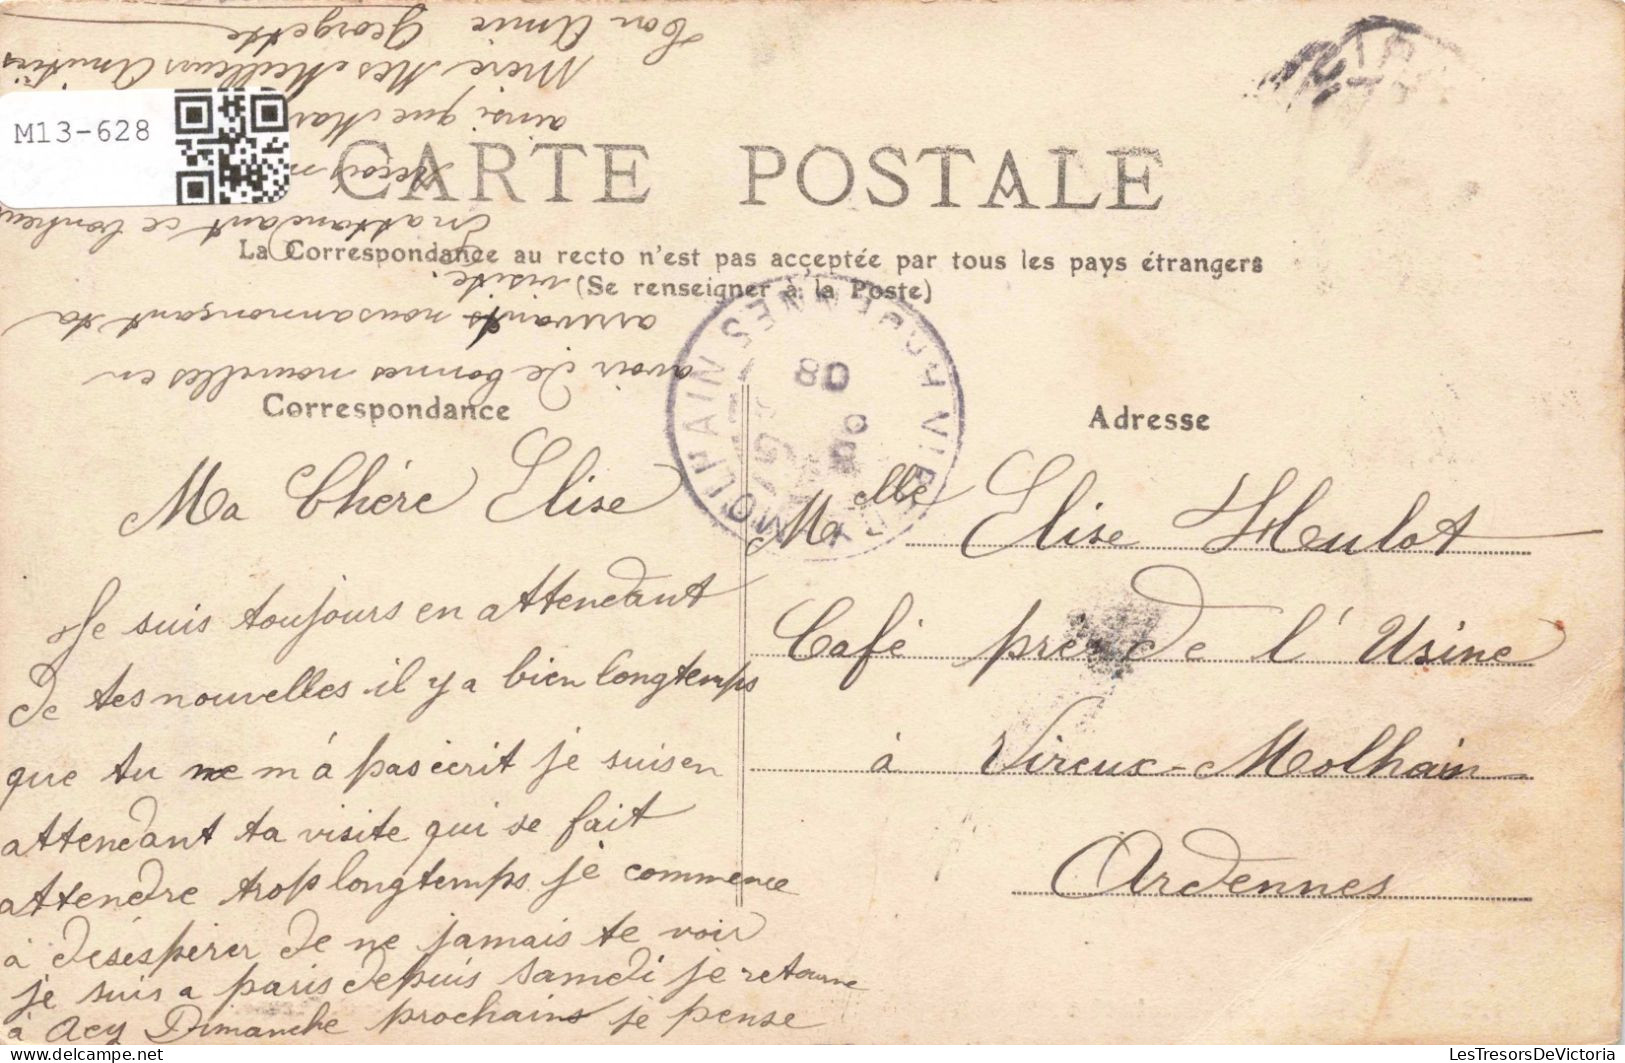 M13-628
CARTE POSTALE
La Correspondance au recto n'est pas acceptée par tous les pays étrangers
(Se renseigner à la Poste)
Correspondance
Adresse
VIREUX-MOLHAIN ARDENNES
08
Ma Chére Elise
Je suis toujours en attendant
de tes nouvelles il y a bien longtemps
que tu ne m'á pas écrit je suis en
attendant ta visite qui se fait
attendre trop longtemps je commence
à desésperer de ne jamais te voir
je suis a paris depuis samedi je retourne
à Acy Dimanche prochains je pense
avoir de bonnes nouvelles en
arrivants nous annonçant ta
visite.
En attendant ce bonheur
Reçois
ainsi que
Mère Mes Meilleurs Amitiés
Ton Amie Georgette
Melle Elise Hulot
Café près de l'Usine
à Vireux-Molhain
Ardennes
LesTresorsDeVictoria